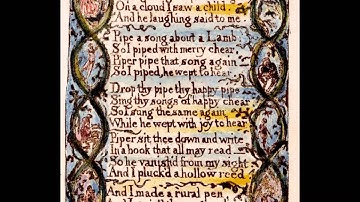 On a cloud I saw a child.
And he laughing said to me.
Pipe a song about a Lamb:
So I piped with merry chear,
Piper pipe that song again
So I piped, he wept to hear.
Drop thy pipe thy happy pipe
Sing thy songs of happy chear
So I sung the same again
While he wept with joy to hear
Piper sit thee down and write
In a book that all may read
So he vanish'd from my sight
And I pluck'd a hollow reed
And I made a rural pen,